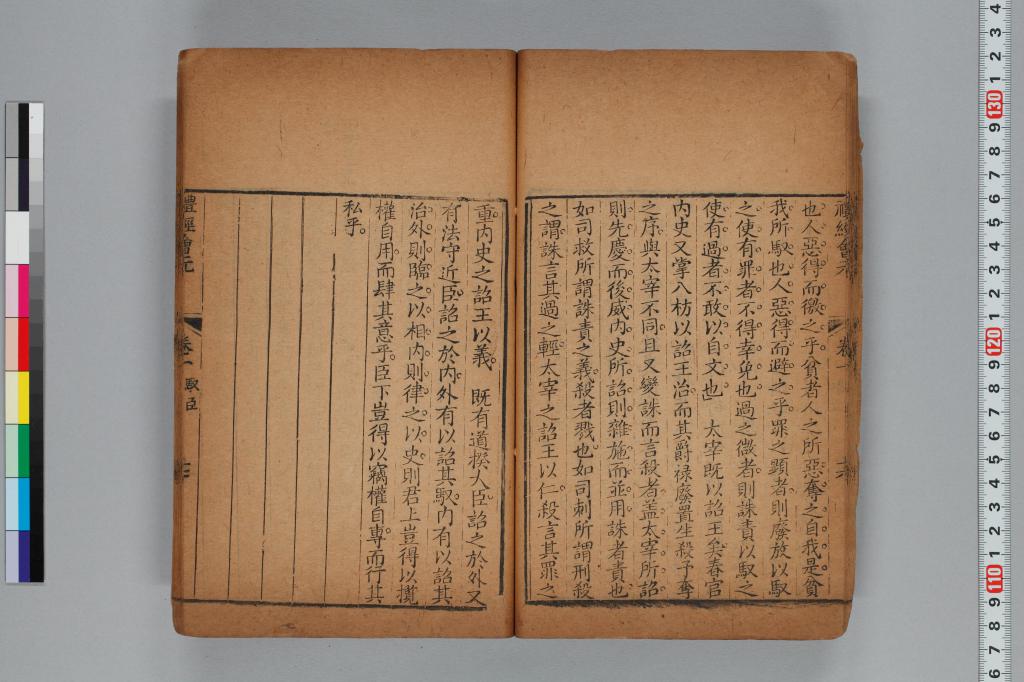 也人惡得而徼之乎貧者人之所惡奪之自我是貧
我所馭也人惡得而避之乎罪之顯者則廢放以馭
之使有罪者不得幸免也過之微者則誅責以馭之
使有過者不敢以自文也 太宰既以詔王矣春官
内史又掌八枋以詔王治而其爵禄廢置生殺予奪
之序與太宰不同且又變誅而言殺者盖太宰所詔
則先慶而後威内史所詔則雜施而並用誅者責也
如司救所謂誅責之義殺者戮也如司刺所謂刑殺
之謂誅言其過之輕太宰之詔王以仁殺言其罪之
重内史之詔王以義 既有道揆大臣詔之於外又
有法守近臣詔之於内外有以詔其馭内有以詔其
治外則臨之以相内則律之以史則君上豈得以攬
權自用而肆其意乎臣下豈得以竊權自專而行其
私乎
禮經會元 卷一 馭臣